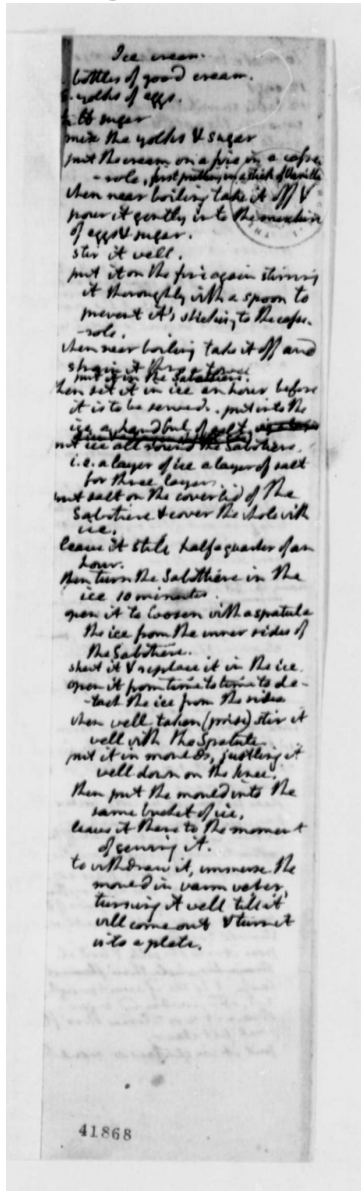 Ice cream.
bottles of good cream.
yolks of eggs.
lb sugar
mix the yolks & sugar
put the cream on a fire in a casse-
-role, first putting in a stick of Vanilla
when near boiling take it off &
pour it gently into the mixture
of eggs & sugar.
stir it well.
put it on the fire again stirring
it thoroughly with a spoon to
prevent it's sticking to the casse-
-role.
when near boiling take it off and
strain it thro' a towel
put it in the Sabottiere.
then set it in ice an hour before
it is to be served. put into the
ice a handful of salt
put ice all round the Sabottiere.
i.e. a layer of ice a layer of salt
for three layers.
put salt on the coverlid of the
Sabotiere & cover the whole with
ice.
leave it still half a quarter of an
hour.
then turn the Sabottiere in the
ice 10 minutes.
open it to loosen with a spatula
the ice from the inner sides of
the Sabotiere.
shut it & replace it in the ice.
open it from time to time to de-
-tach the ice from the sides
when well taken (prise) stir it
well with the Spatula.
put it in moulds, justling it
well down on the knee.
then put the mould into the
same bucket of ice.
leave it there to the moment
of serving it.
to withdraw it, immerse the
mould in warm water,
turning it well till it
will come out & turn it
into a plate.
41868